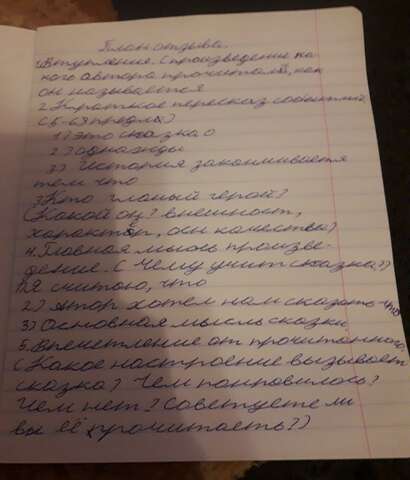 План отзыва.
1. Вступление. (произведение ка
кого автора прочитали, как
он называется
2. Краткое пересказ событий
(5-6 предл.)
1) Это сказка о
2) однажды
3) История заканчивается
тем что
3. Кто главный герой?
(Какой он? внешност,
характер, осн качества?)
4. Главная мысль произве-
дение. (Чему учит сказка?)
1) Я считаю, что
2) Автор хотел нам сказать что
3) Основная мысль сказки
5. Впечетление от прочитанного
(Какое настроение вызывает
сказка? Чем понровилось?
Чем нет? Советуете ли
вы её прочитость?)